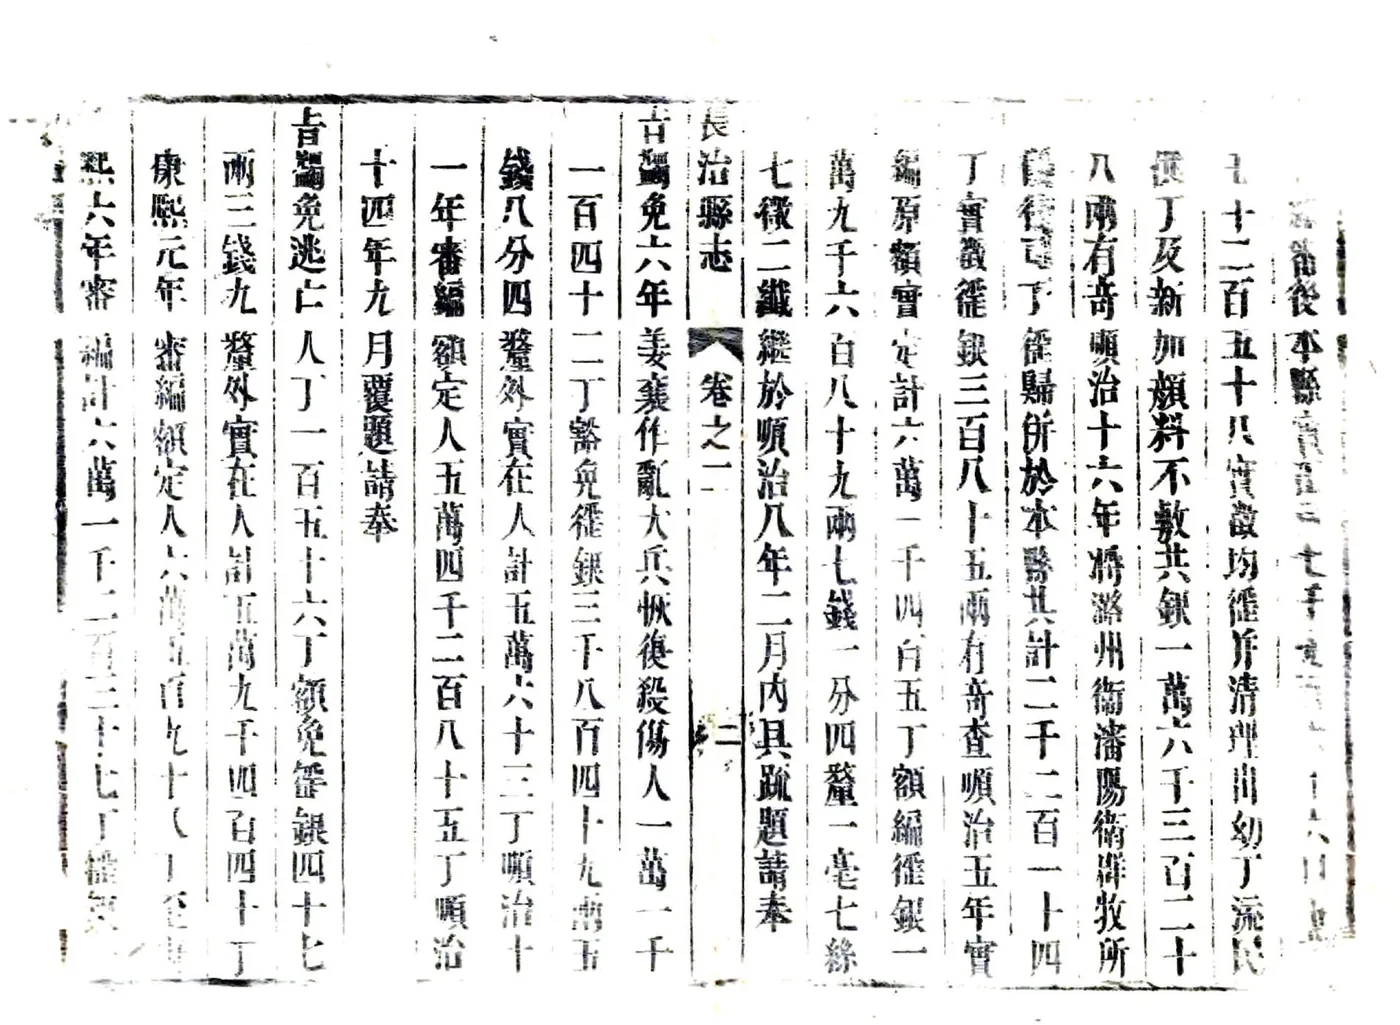 審後本縣實
七十二百五十八實徵均徭并清理出幼丁流民
丁及新加顏料不敷共銀一萬六千三百二十
八兩有奇順治十六年將潞州衞瀋陽衞群牧所
丁徭歸併於本縣共計二千二百一十四
丁實徵徭銀三百八十五兩有奇查順治五年實
編原額實定計六萬一千四百五丁額編徭銀一
萬九千六百八十九兩七錢一分四釐一毫七絲
七微二纖繼於順治八年二月內具疏題請奉
長治縣志 卷之二 二
旨蠲免六年姜瓖作亂大兵恢復殺傷人一萬一千
一百四十二丁豁免徭銀三千八百四十九兩五
錢八分四釐外實在人計五萬六十三丁順治十
一年審編額定人五萬四千二百八十五丁順治
十四年九月覆題請奉
旨蠲免逃亡人丁一百五十六丁額免徭銀四十七
兩三錢九釐外實在人計五萬九千四百四十丁
康熙元年審編額定人六萬五百九十八丁至康
熙六年審編計六萬一千二百三十七丁徭銀